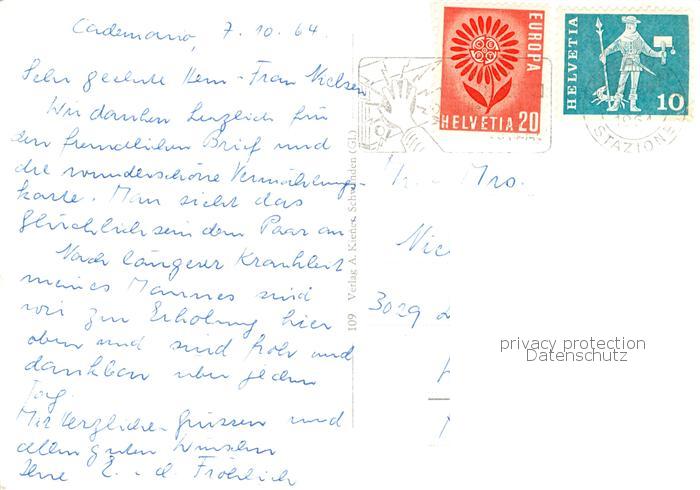 Cademario, 7.10.64.
Sehr geehrte Herr - Frau Nielsen
Wir danken herzlich für
den freundlichen Brief und
die wunderschöne Vermählungs-
karte. Man sieht das
glücklich sein dem Paar an.
Nach längerer Krankheit
meines Mannes sind
wir zur Erholung hier
oben und sind froh und
dankbar über jeden
Tag.
Mit herzlichen Grüssen und
allen guten Wünschen
Ihre E. - d. Fröhlich
109 Verlag A. Kienes, Schwanden (GL)
EUROPA
HELVETIA 20
HELVETIA
10
STAZIONE
Mrs.
Nie
3029
privacy protection
Datenschutz